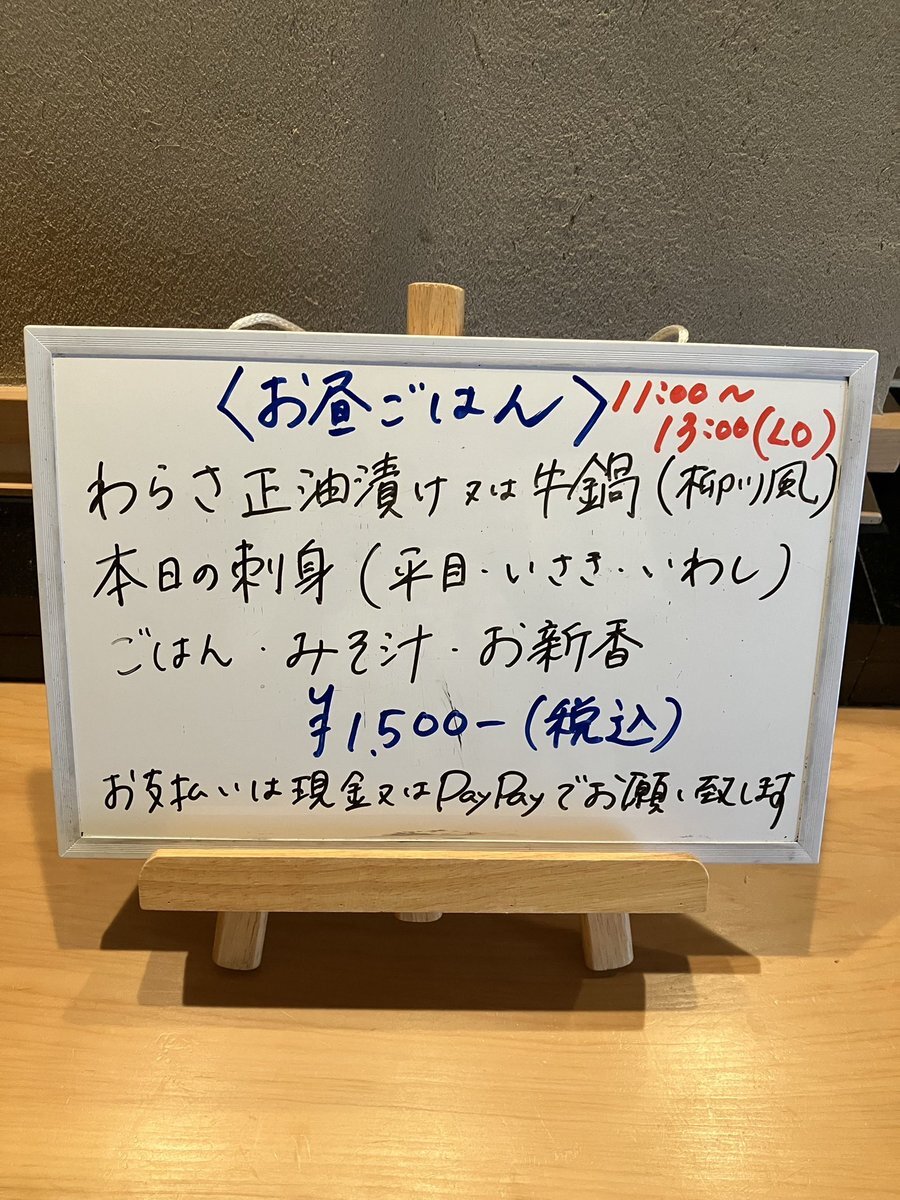 〈お昼ごはん〉 11:00〜
13:00(LO)
わらさ正油漬け又は牛鍋(柳川風)
本日の刺身(平目・いさき・いわし)
ごはん・みそ汁・お新香
¥1,500-(税込)
お支払いは現金又はPayPayでお願い致します